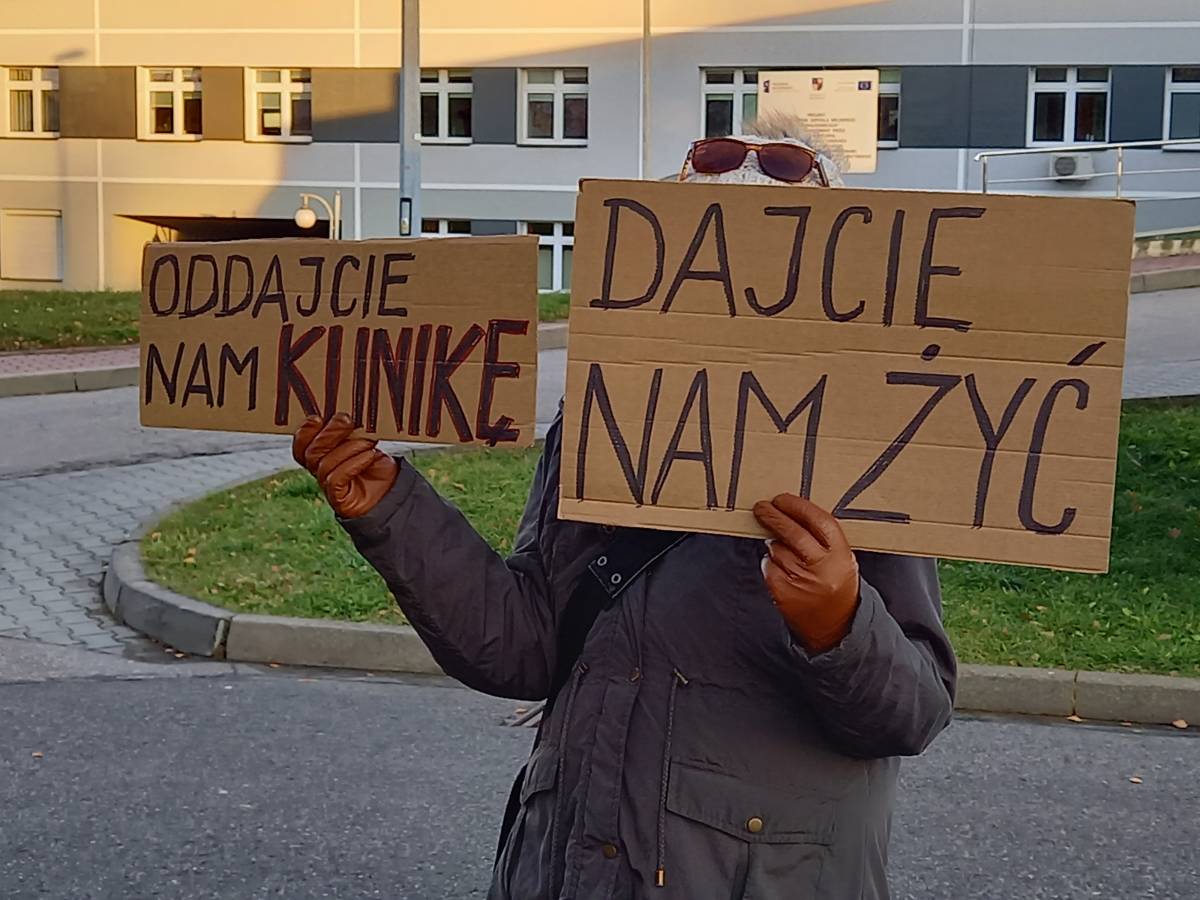 ODDAJCIE
NAM KLINIKĘ
DAJCIE
NAM ŻYĆ